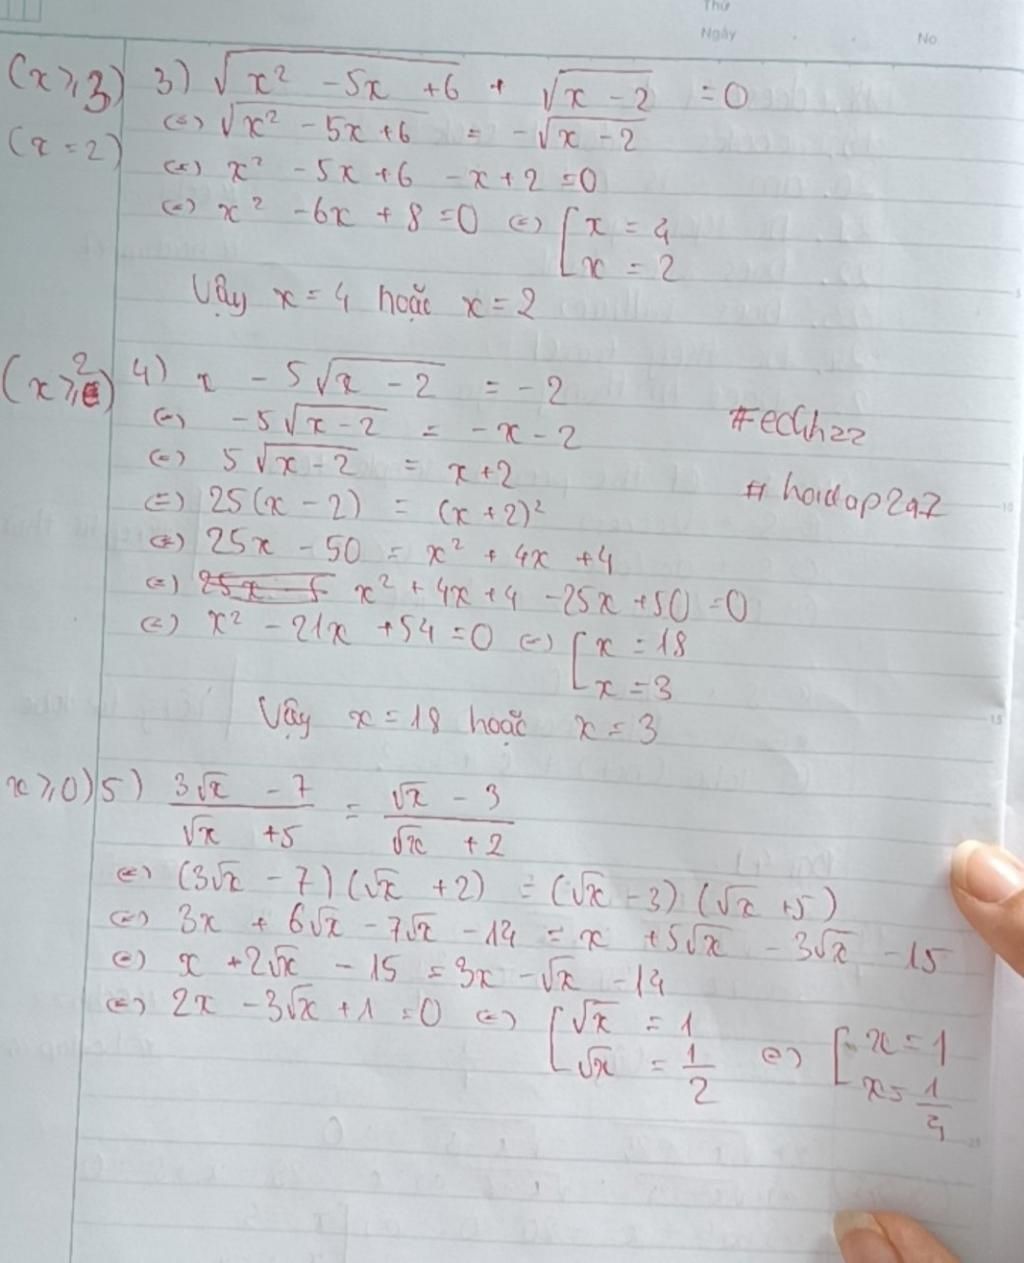 Thứ
Ngày . . No
(x ⩾ 3) 3) √(x² - 5x + 6) + √(x - 2) = 0
(x = 2) (=) √(x² - 5x + 6) = -√(x - 2)
(=) x² - 5x + 6 - x + 2 = 0
(=) x² - 6x + 8 = 0 (=) [ x = 4
x = 2
Vậy x = 4 hoặc x = 2
(x ⩾ 2) 4) x - 5√(x - 2) = -2
(=) -5√(x - 2) = -x - 2
(=) 5√(x - 2) = x + 2
(=) 25(x - 2) = (x + 2)²
(=) 25x - 50 = x² + 4x + 4
(=) x² + 4x + 4 - 25x + 50 = 0
(=) x² - 21x + 54 = 0 (=) [ x = 18
x = 3
Vậy x = 18 hoặc x = 3
x ⩾ 0) 5) (3√x - 7)/(√x + 5) = (√x - 3)/(√x + 2)
(=) (3√x - 7)(√x + 2) = (√x - 3)(√x + 5)
(=) 3x + 6√x - 7√x - 14 = x + 5√x - 3√x - 15
(=) x + 2√x - 15 = 3x - √x - 14
(=) 2x - 3√x + 1 = 0 (=) [ √x = 1 (=) [ x = 1
√x = 1/2 x = 1/4
# hoidap247